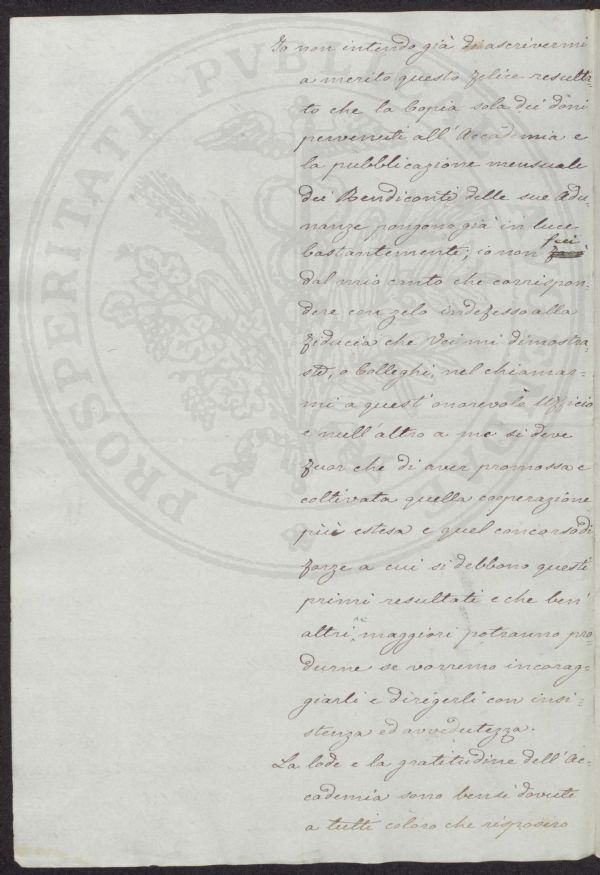 Io non intendo già di ascrivermi
a merito questo felice resulta-
to che la Copia sola dei doni
pervenuti all'Accademia e
la pubblicazione mensuale
dei Rendiconti delle sue Adu-
nanze pongono già in luce
bastantemente; io non feci
dal mio canto che corrispon-
dere con zelo indefesso alla
fiducia che Voi mi dimostra-
ste, o Colleghi, nel chiamar-
mi a quest'onorevole Ufficio
e null'altro a me si deve
fuor che di aver promossa e
coltivata quella cooperazione
più estesa e quel concorso di
forze a cui si debbono questi
primi resultati e che ben
altri e maggiori potranno pro-
durne se vorremo incorag-
giarli e dirigerli con insi-
stenza ed avvedutezza.
La lode e la gratitudine dell'Ac-
cademia sono bensì dovute
a tutti coloro che risposero
PROSPERITATI PUBLICAE